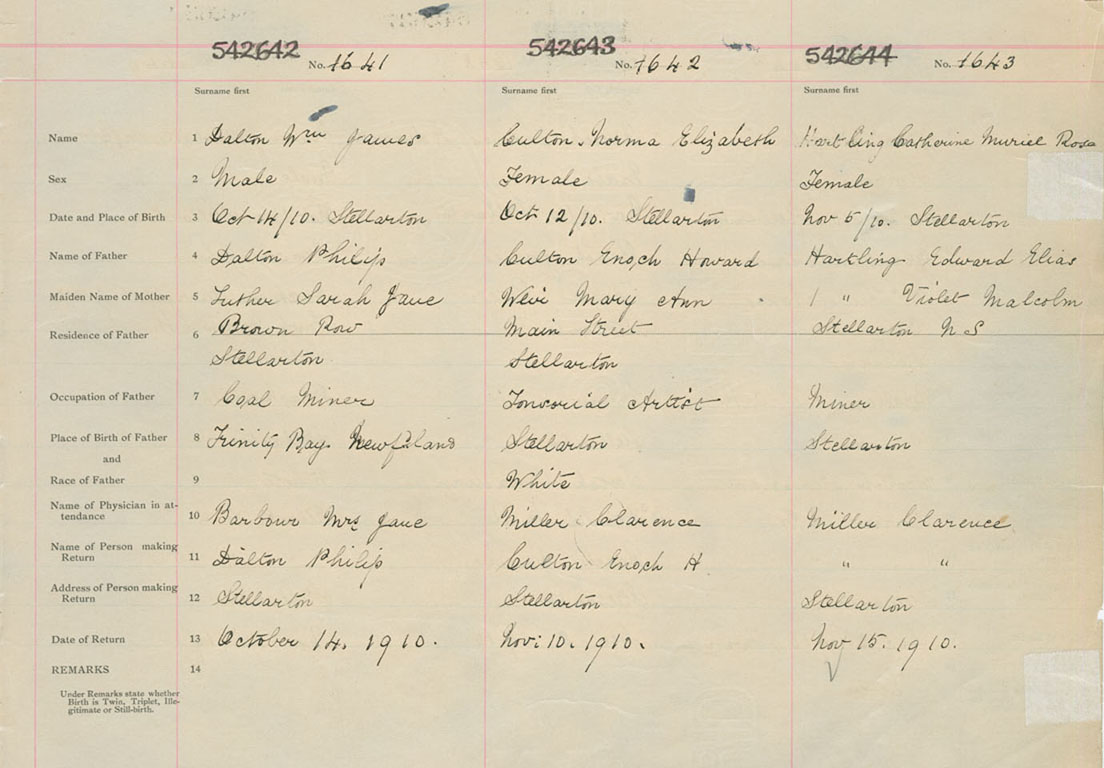 542642 No. 1641 542643 No. 1642 542644 No. 1643
Surname first Surname first Surname first
Name 1 Dalton Wm James Culton Norma Elizabeth Hartling Catherine Muriel Rosa
Sex 2 Male Female Female
Date and Place of Birth 3 Oct 14/10. Stellarton Oct 12/10. Stellarton Nov 5/10. Stellarton
Name of Father 4 Dalton Philip Culton Enoch Howard Hartling Edward Elias
Maiden Name of Mother 5 Luther Sarah Jane Weir Mary Ann " Violet Malcolm
Residence of Father 6 Brown Row Main Street Stellarton N S
Stellarton Stellarton
Occupation of Father 7 Coal Miner Tonsorial Artist Miner
Place of Birth of Father 8 Trinity Bay Newfland Stellarton Stellarton
and
Race of Father 9 White
Name of Physician in at-
tendance 10 Barbour Mrs Jane Miller Clarence Miller Clarence
Name of Person making
Return 11 Dalton Philip Culton Enoch H. " "
Address of Person making
Return 12 Stellarton Stellarton Stellarton
Date of Return 13 October 14. 1910. Nov: 10. 1910. Nov 15. 1910.
REMARKS 14
Under Remarks state whether
Birth is Twin, Triplet, Ille-
gitimate or Still-birth.